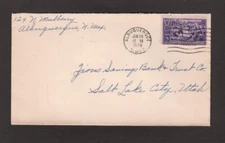 124 N. Mulberry
Albuquerque, N. Mex.
ALBUQUERQUE
N. MEX.
Zions Savings Bank & Trust Co.
Salt Lake City, Utah